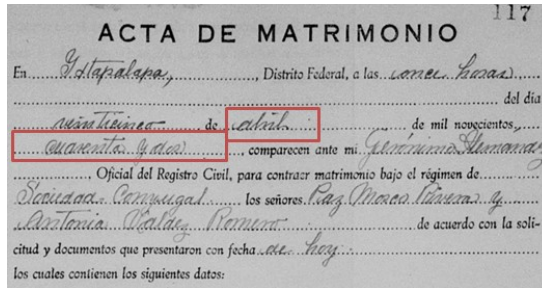 117
ACTA DE MATRIMONIO
En Ixtapalapa, , Distrito Federal, a las once horas
del día
veinticinco de abril de mil novecientos,
cuarenta y dos , comparecen ante mí Gerónimo Hernandez
Oficial del Registro Civil, para contraer matrimonio bajo el régimen de
Sociedad Conyugal los señores Paz Moreo Rivera y
Antonia Valdez Romero de acuerdo con la soli-
citud y documentos que presentaron con fecha de hoy
los cuales contienen los siguientes datos: